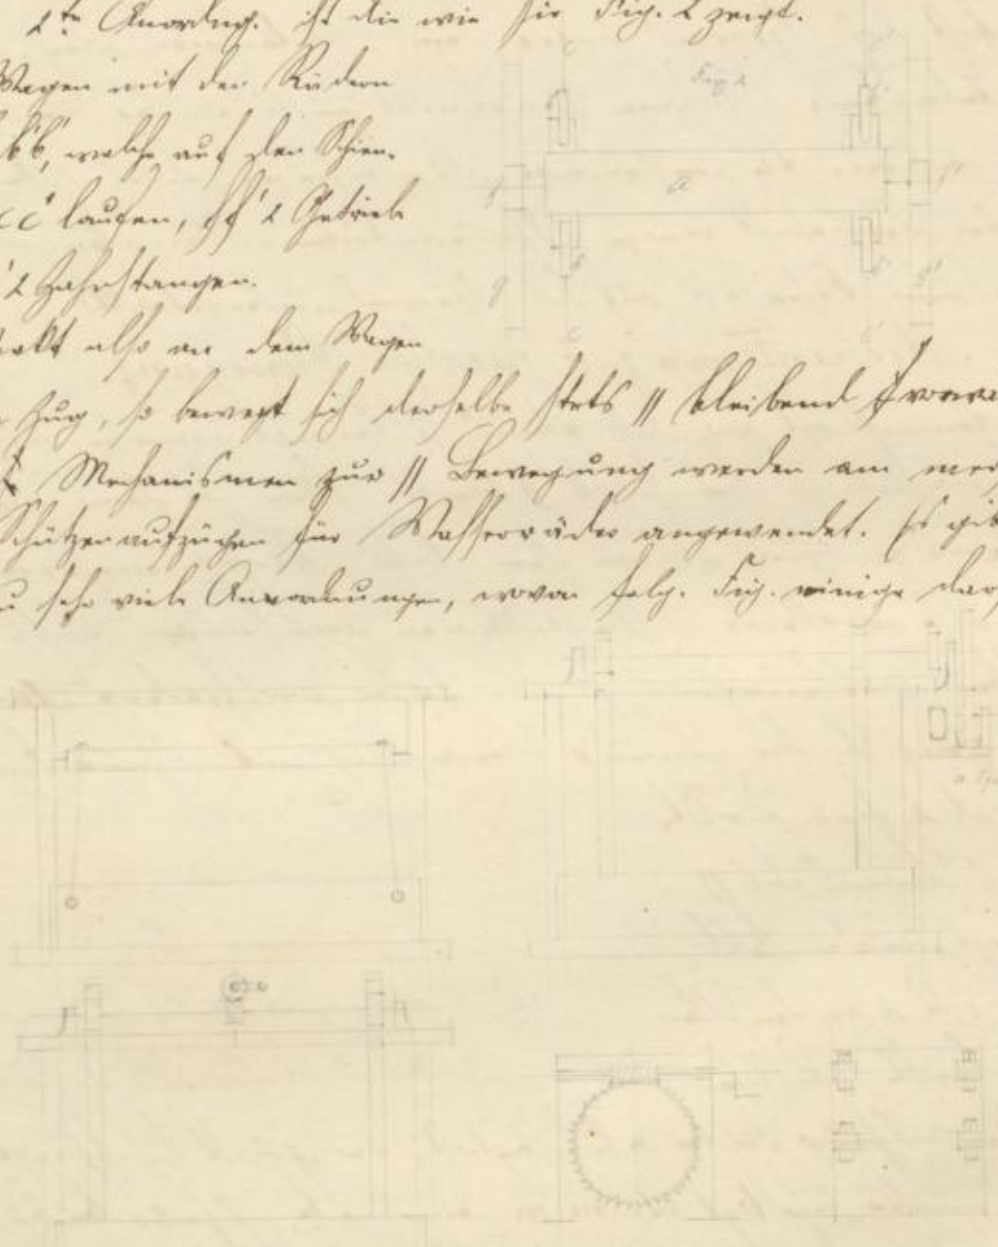 2te Anordng. ist die wie sie Fig. 2 zeigt.
Fig 2
Wagen mit den Rädern
b'b', welche auf den Schien.
cc' laufen, ff' 2 Getriebe
a
2 Zahnstangen.
g
also an dem Wagen
Zug, so bewegt sich derselbe stets // bleibend
Mechanismen zur // Bewegung werden am
Schützenaufzügen für Wasserräder angewendet. Es
sehr viele Anordnungen, wovon folg. Fig. einige